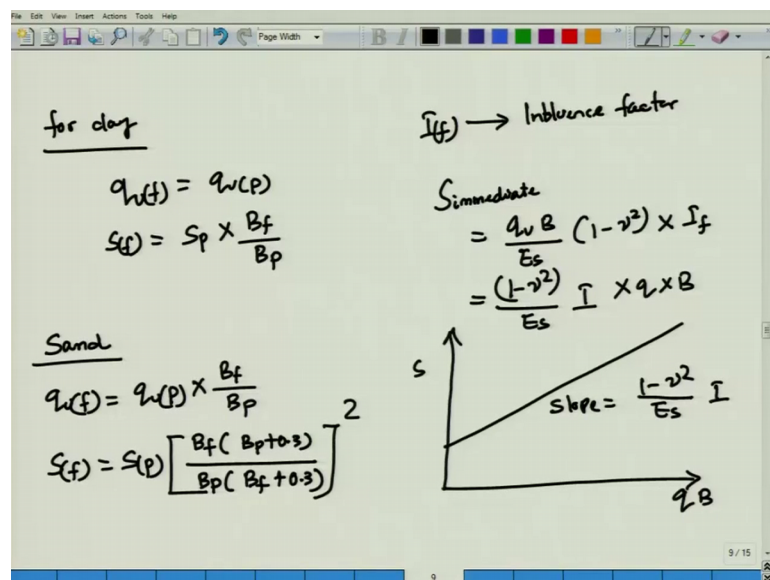 File Edit View Insert Actions Tools Help
Page Width
B I
for clay
q_u(f) = q_u(p)
S(f) = S_p × B_f / B_p
Sand
q_u(f) = q_u(p) × B_f / B_p
S(f) = S(p) [ B_f ( B_p + 0.3) / B_p ( B_f + 0.3) ]^2
I(f) → Influence factor
S immediate
= q_u B / E_s (1-ν²) × I_f
= (1-ν²) / E_s I × q × B
S
Slope = 1-ν² / E_s I
q B
9 / 15
9